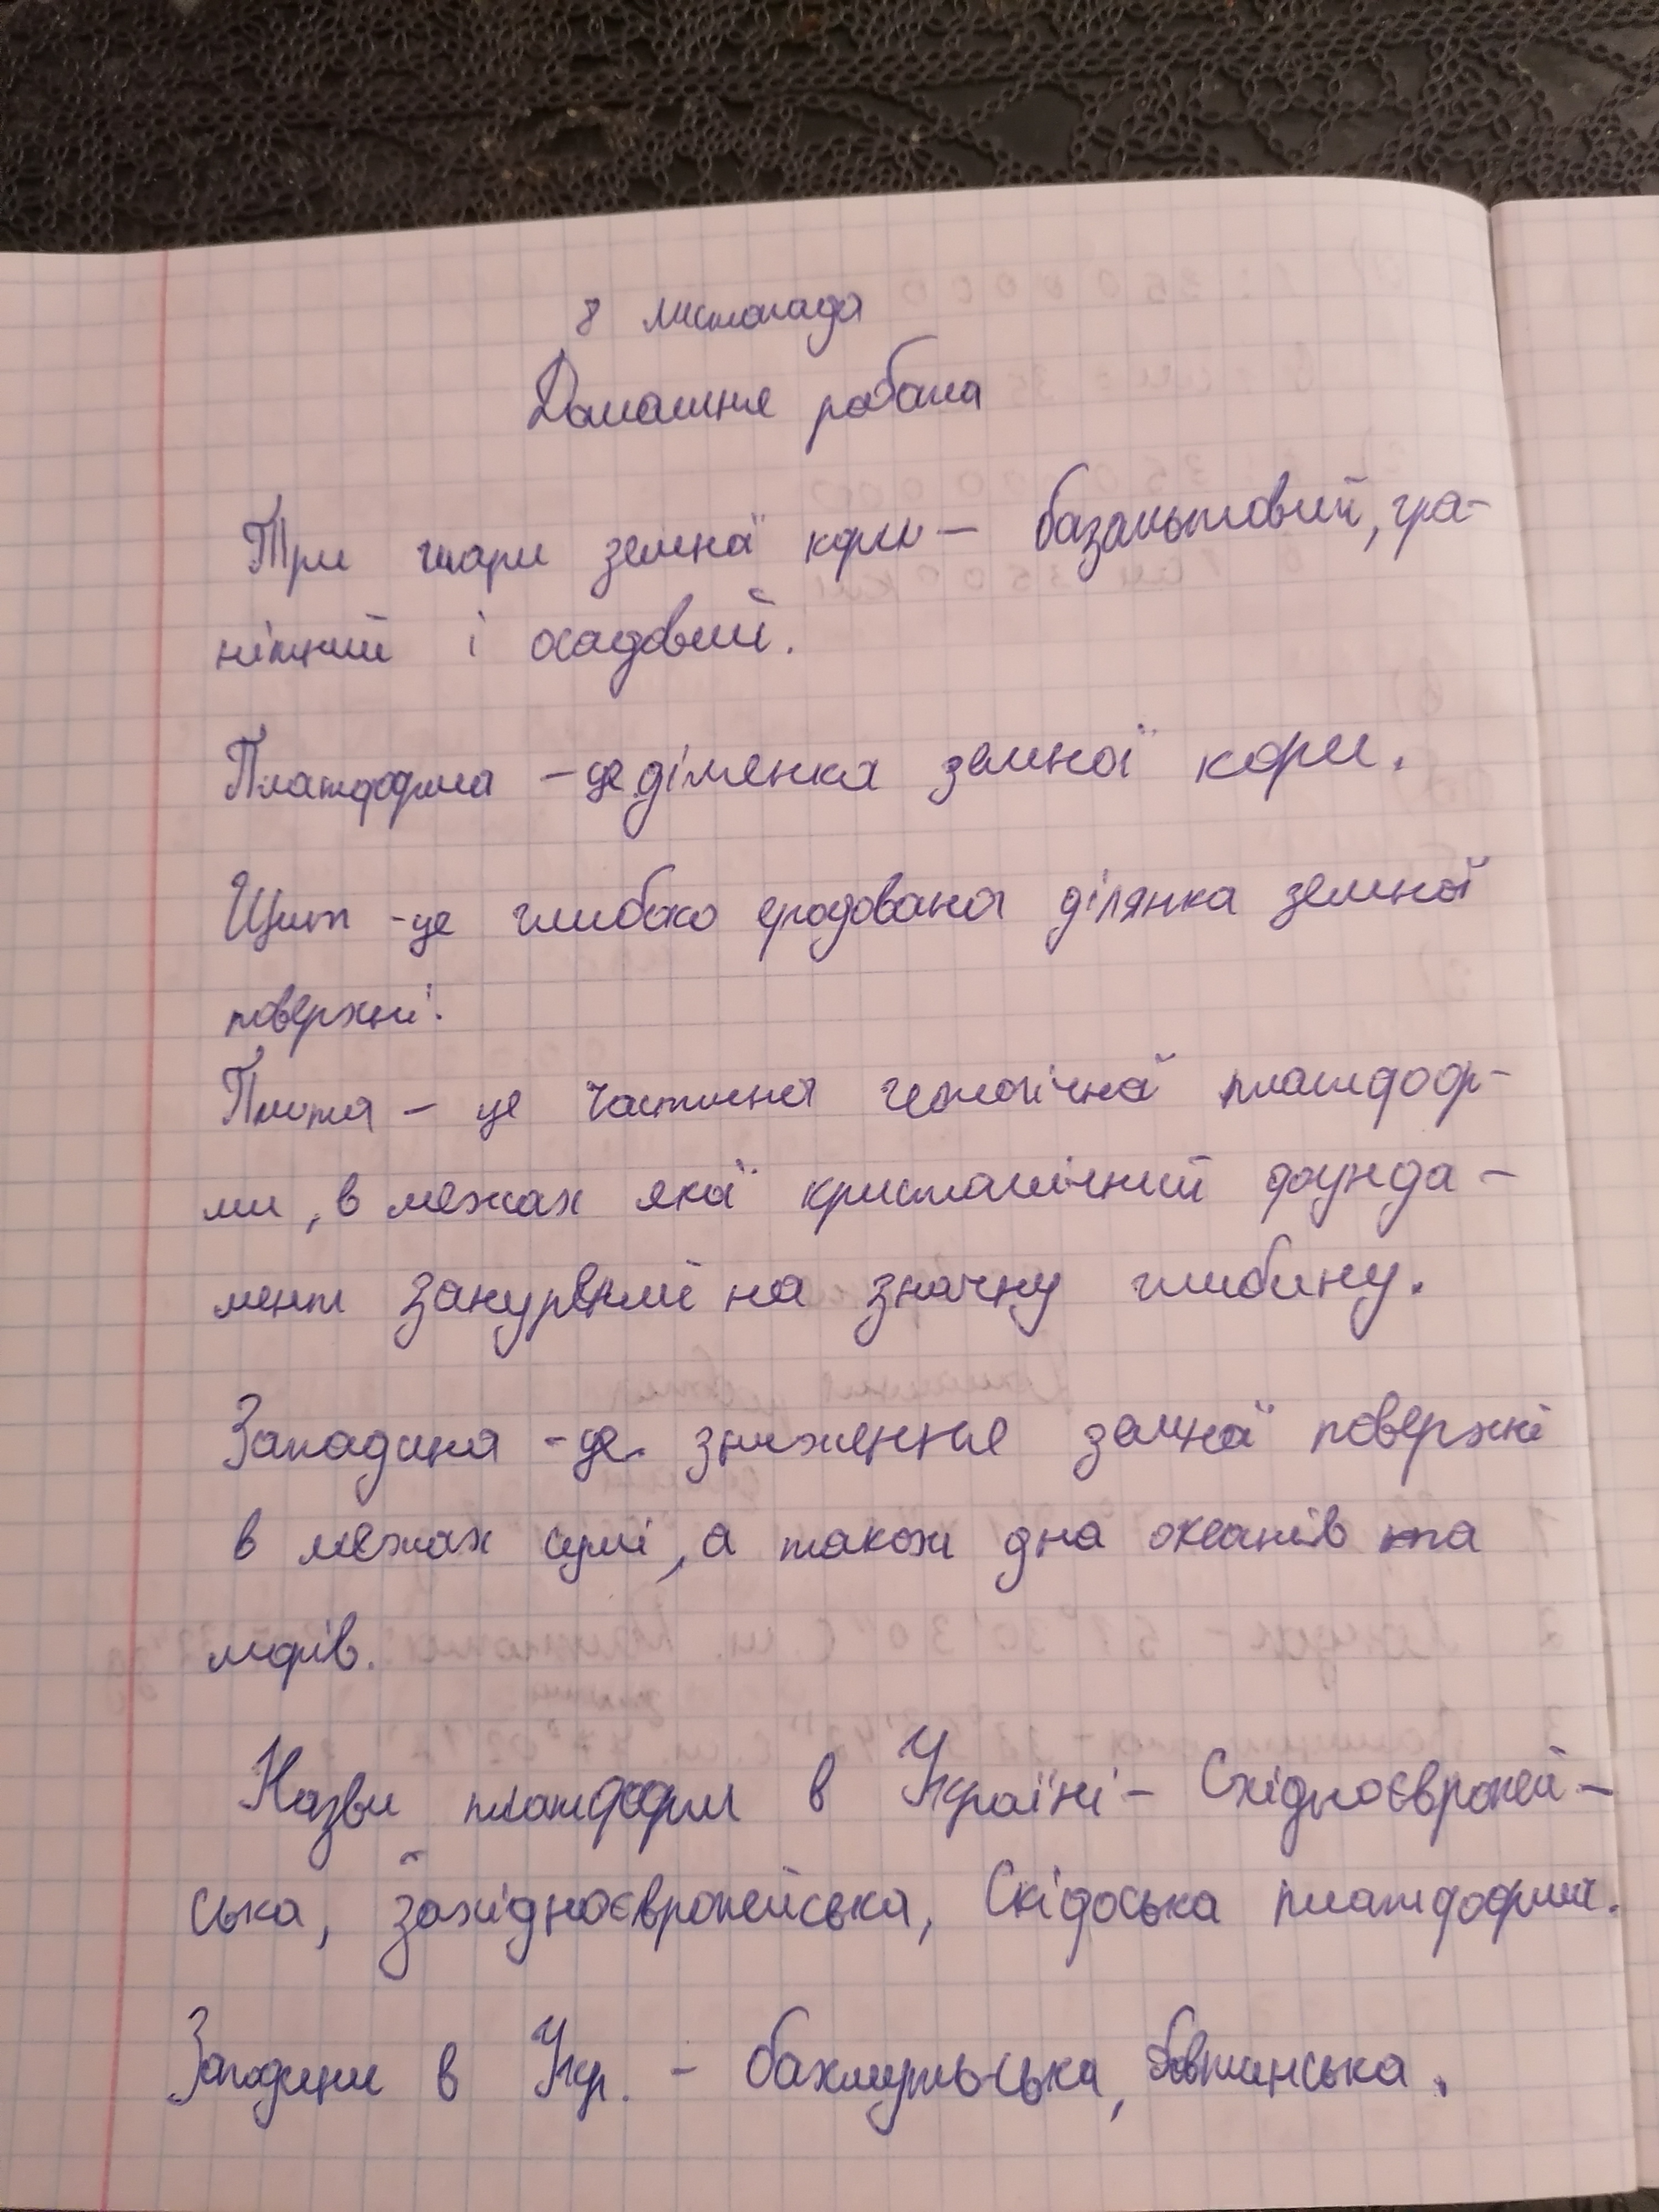 8 листопада
Домашня робота
Три шари земної кори – базальтовий, гра-
нітний і осадовий.
Платформа – це ділянка земної кори.
Щит - це глибоко еродована ділянка земної
поверхні.
Плита – це частина геологічної платфор-
ми, в межах якої кристалічний фунда-
мент занурений на значну глибину.
Западина - це зниження земної поверхні
в межах суші, а також дна океанів та
морів.
Назви платформ в Україні – Східноєвропей-
ська, західноєвропейська, Скіфська платформи.
Западини в Укр. - бахмутська, бовтиська.